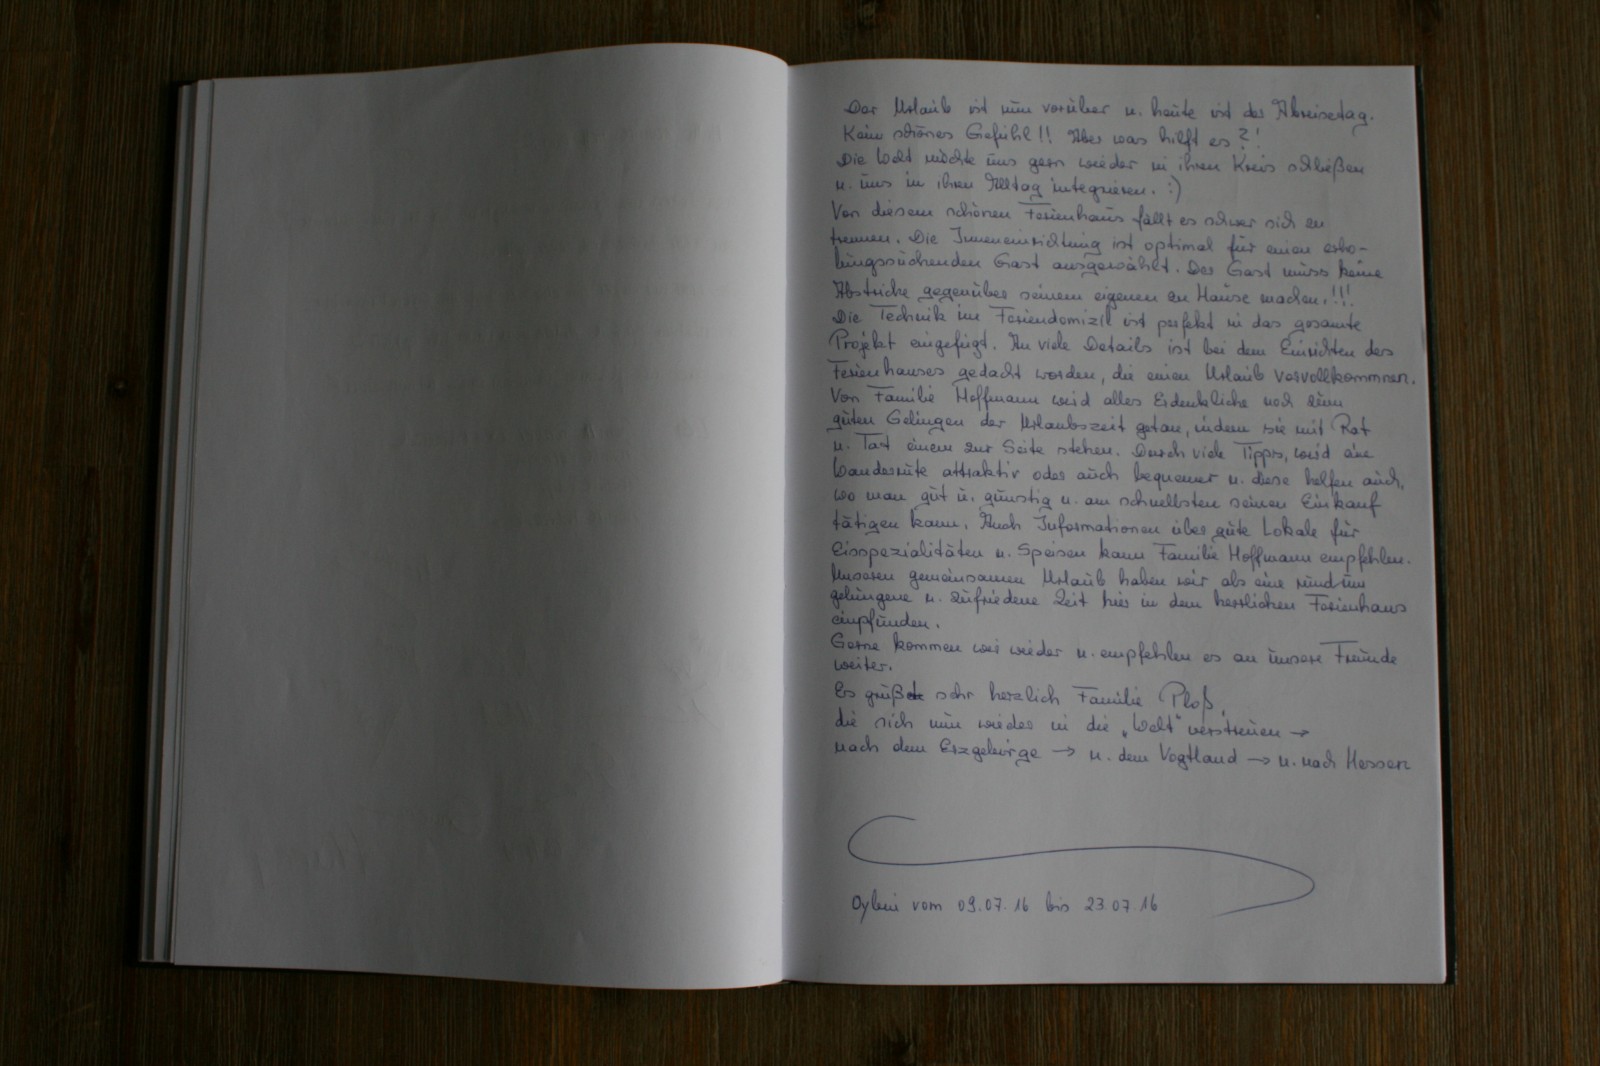 Der Urlaub ist nun vorüber u. heute ist der Abreisetag.
Kein schönes Gefühl!! Aber was hilft es?!
Die Welt möchte uns gern wieder in ihren Kreis schließen
u. uns in ihren Alltag integrieren. :)
Von diesem schönen Ferienhaus fällt es schwer sich zu
trennen. Die Inneneinrichtung ist optimal für einen erho-
lungssuchenden Gast ausgewählt. Der Gast muss keine
Abstriche gegenüber seinem eigenen zu Hause machen!!!
Die Technik im Feriendomizil ist perfekt in das gesamte
Projekt eingefügt. An viele Details ist bei dem Einrichten des
Ferienhauses gedacht worden, die einen Urlaub vervollkommnen.
Von Familie Hoffmann wird alles Erdenkliche noch zum
guten Gelingen der Urlaubszeit getan, indem sie mit Rat
u. Tat einem zur Seite stehen. Durch viele Tipps, wird eine
Wanderroute attraktiv oder auch bequemer u. diese helfen auch,
wo man gut u. günstig u. am schnellsten seinen Einkauf
tätigen kann. Auch Informationen über gute Lokale für
Eisspezialitäten u. Speisen kann Familie Hoffmann empfehlen.
Unseren gemeinsamen Urlaub haben wir als eine rundum
gelungene u. zufriedene Zeit hier in dem herrlichen Ferienhaus
empfunden.
Gerne kommen wir wieder u. empfehlen es an unsere Freunde
weiter.
Es grüßt sehr herzlich Familie Ploß,
die sich nun wieder in die „Welt" verstreuen →
nach dem Erzgebirge → u. dem Vogtland → u. nach Hessen
Oybin vom 09.07.16 bis 23.07.16